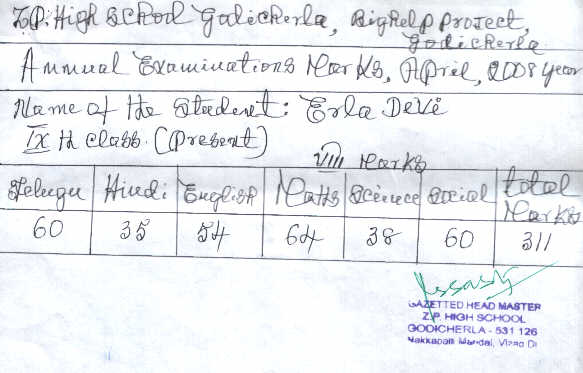 Z.P. High School Godicherla, Bighelp project,
Godicherla
Annual Examinations Marks, April, 2008 year
Name of the Student: Erla Devi
IX th class. (Present)
VIII Marks
Telugu Hindi English Maths Science Social total Marks
60 35 54 64 38 60 311
GAZETTED HEAD MASTER
Z.P. HIGH SCHOOL
GODICHERLA - 531 126
Nakkapalli Mandal, Vizag Dt